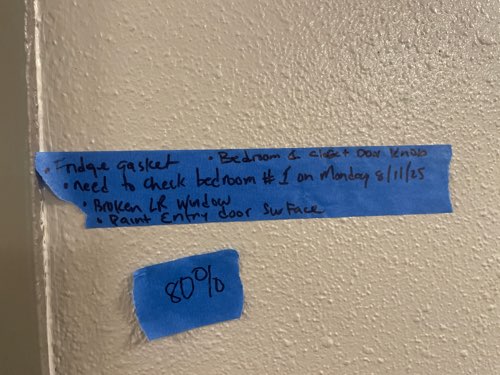 • Fridge gasket • Bedroom 1 closet Door Knob
• need to check bedroom #1 on Monday 8/11/25
• Broken LR Window
• Paint Entry door Surface
80%